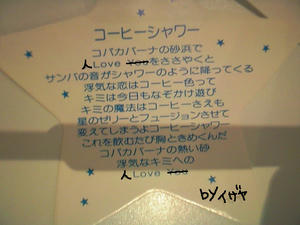 コーヒーシャワー
コパカバーナの砂浜で
人Love Youをささやくと
サンバの音がシャワーのように降ってくる
浮気な恋はコーヒー色って
キミは今日もなぞかけ遊び
キミの魔法はコーヒーさえも
星のゼリーとフュージョンさせて
変えてしまうよコーヒーシャワー
これを飲むたび胸ときめくんだ
コパカバーナの熱い砂
浮気なキミへの
人Love You
byイゲヤ